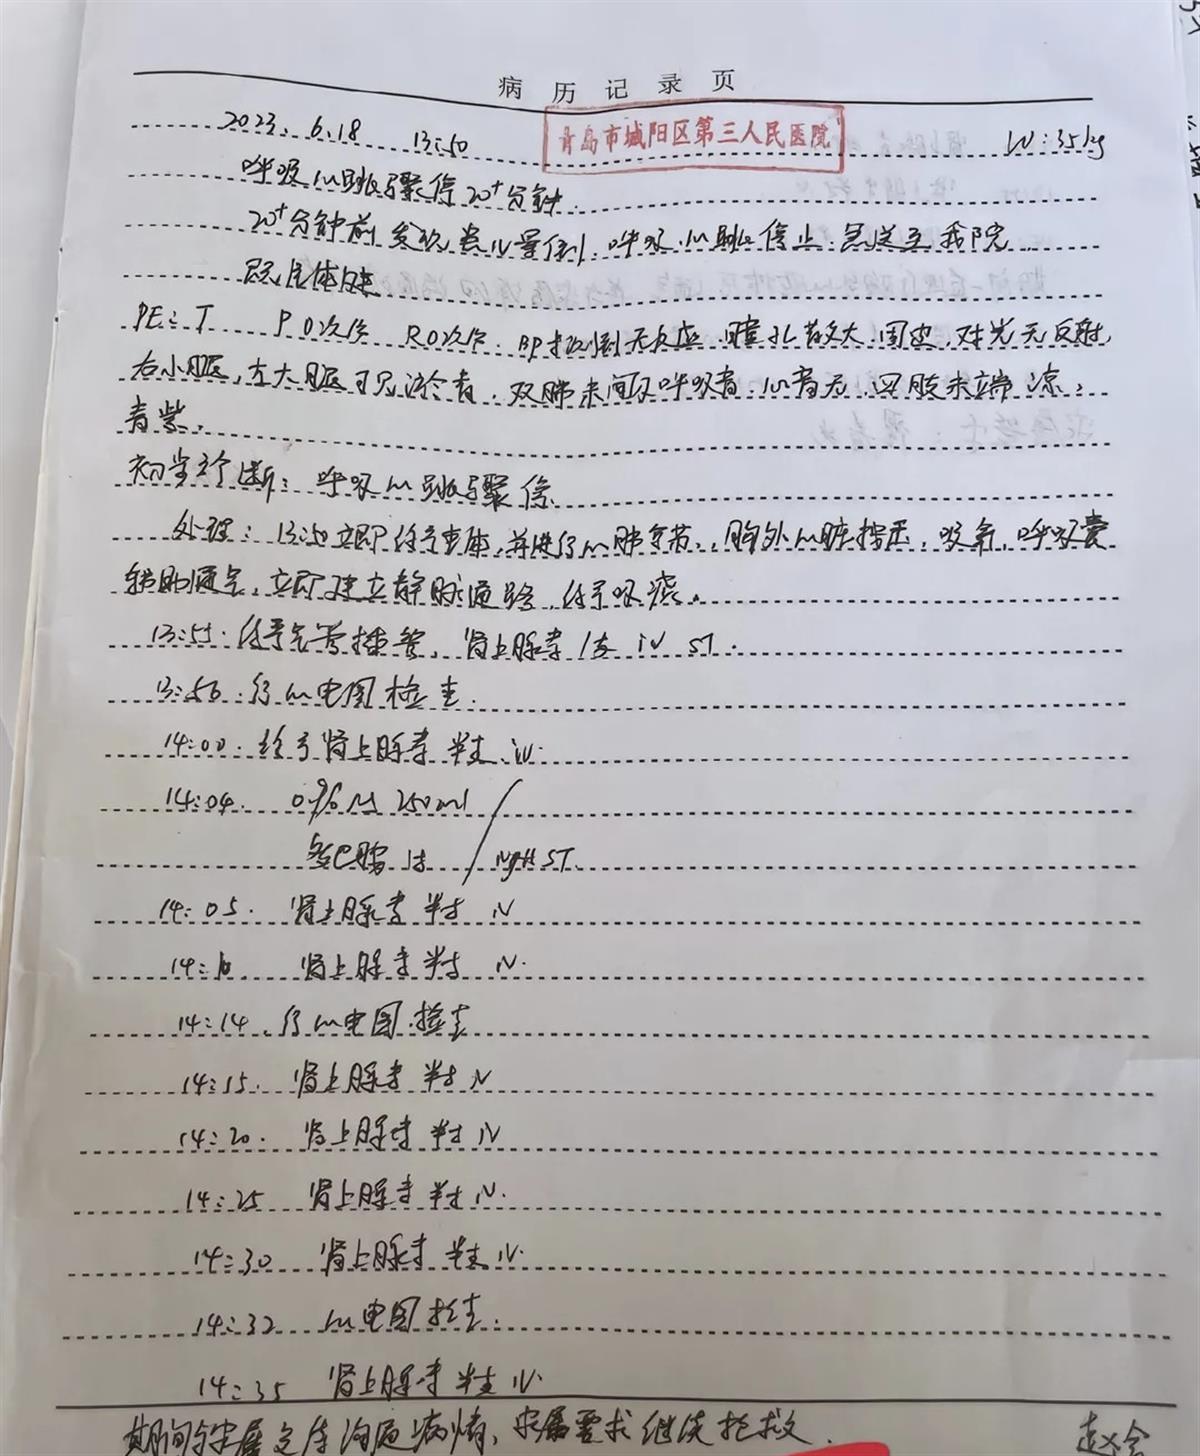 病历记录页
2023.6.18 13:50 青岛市城阳区第三人民医院 W:35kg
呼吸心跳骤停20+分钟.
20+分钟前发现患儿晕倒,呼吸.心跳停止.急送至我院.
既往体健
PE:T P0次/分 R0次/分.BP测无反应.瞳孔散大.固定.对光无反射,
右小腿,左大腿可见淤青.双肺未闻及呼吸音.心音无.四肢末端凉.
青紫.
初步诊断:呼吸心跳骤停.
处理:13:50立即给予患儿,并进行心肺复苏,胸外心脏按压,吸氧,呼吸囊
辅助通气,立即建立静脉通路.给予吸痰.
13:55.给予气管插管,肾上腺素1支iV ST.
13:56.行心电图检查.
14:00.给予肾上腺素半支iV.
14:04. 0.9% NS 250ml
多巴胺1支 ivgtt ST.
14:05. 肾上腺素半支iV
14:10. 肾上腺素半支iV.
14:14.行心电图检查
14:15. 肾上腺素半支iV
14:20. 肾上腺素半支iV
14:25 肾上腺素半支iV.
14:30 肾上腺素半支iV.
14:32 心电图检查.
14:35 肾上腺素半支iV.
期间与家属交待沟通病情,家属要求继续抢救.